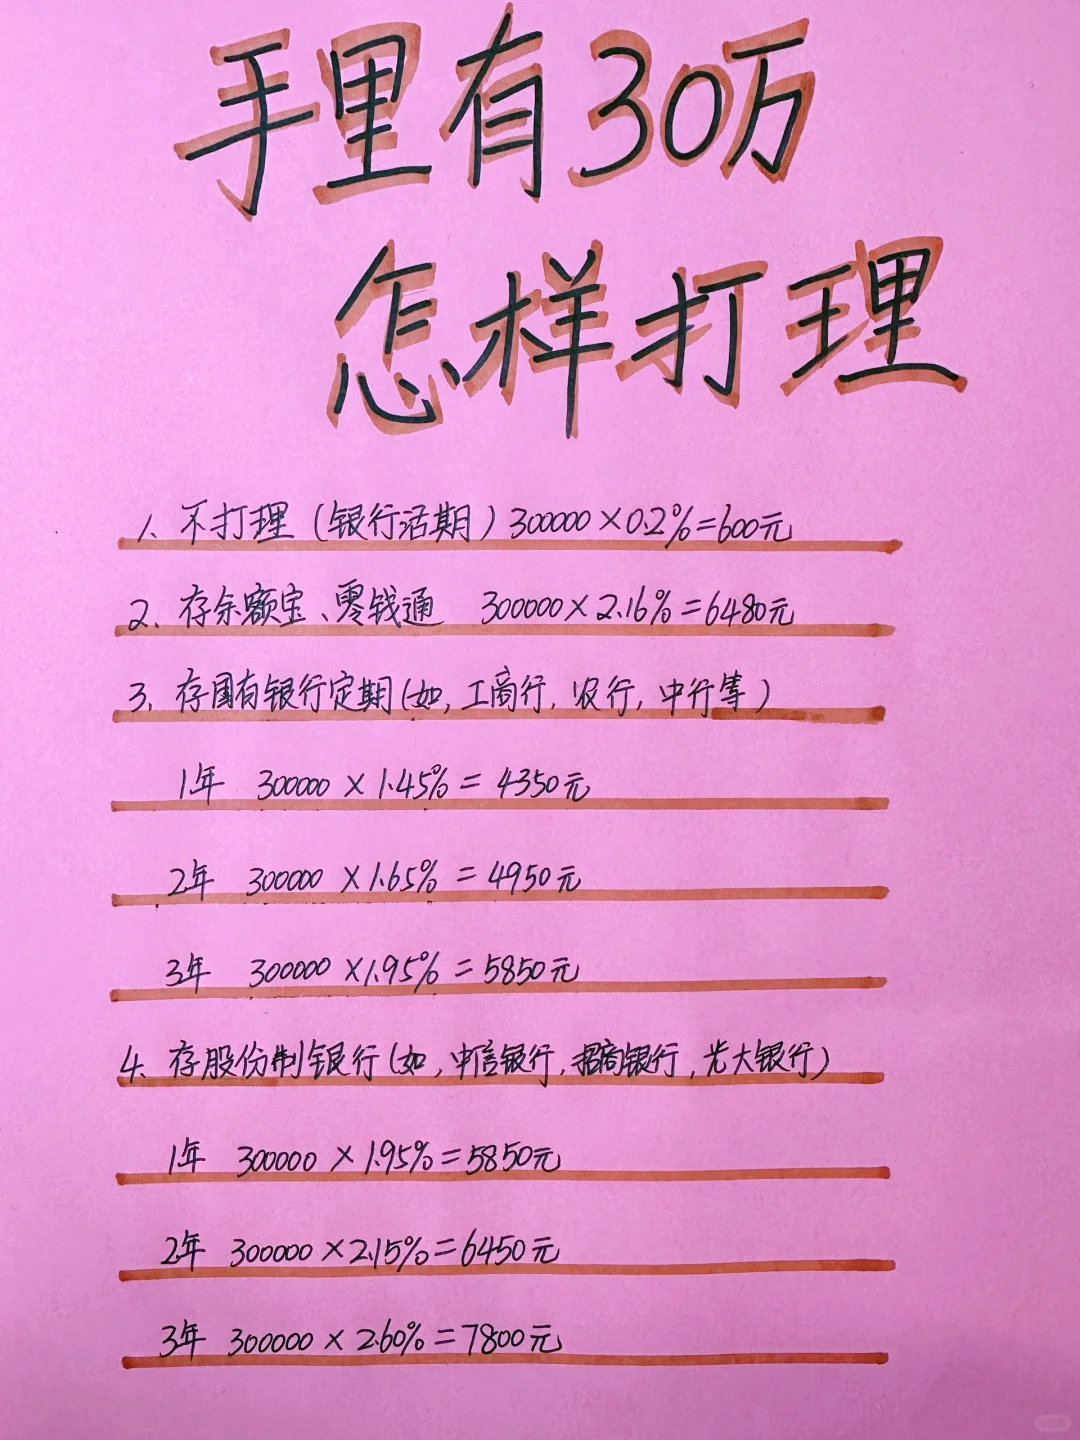 手里有30万
怎样打理
1、不打理（银行活期）300000×0.2%=600元
2、存余额宝、零钱通 300000×2.16%=6480元
3、存国有银行定期(如,工商行,农行,中行等)
1年 300000×1.45%=4350元
2年 300000×1.65%=4950元
3年 300000×1.95%=5850元
4、存股份制银行(如,中信银行,招商银行,光大银行)
1年 300000×1.95%=5850元
2年 300000×2.15%=6450元
3年 300000×2.60%=7800元